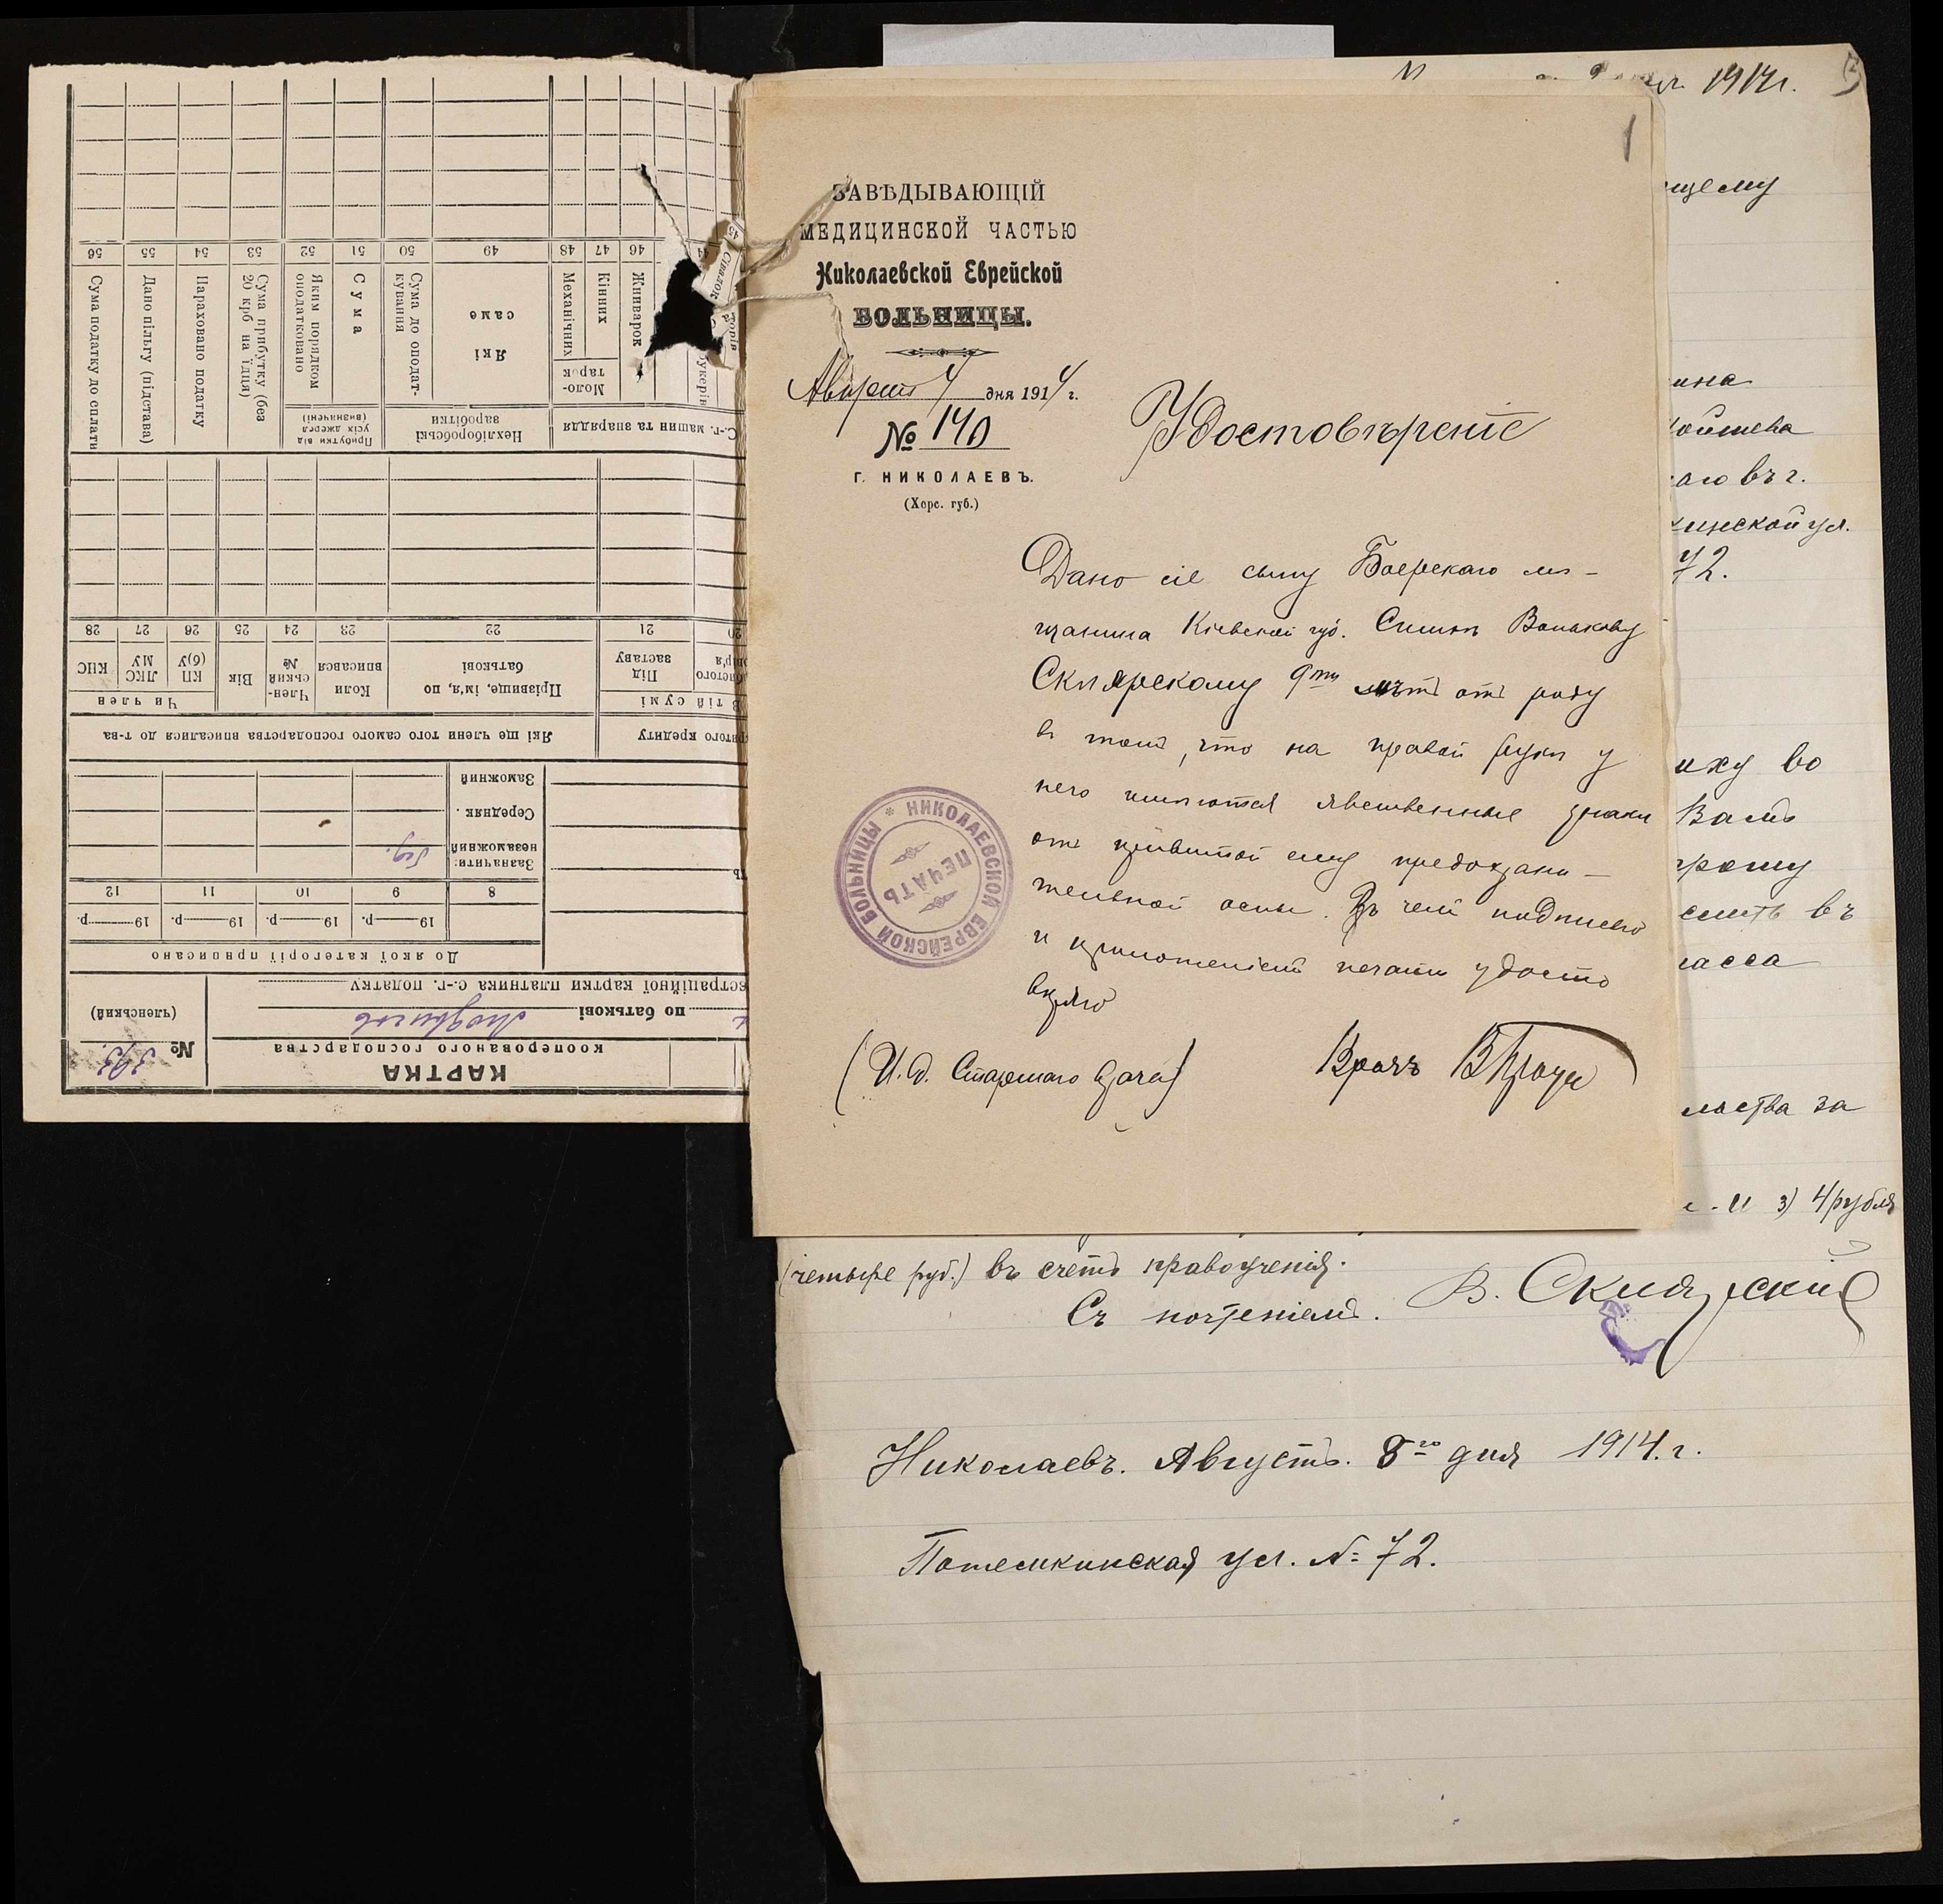 ЗАВѢДЫВАЮЩІЙ
МЕДИЦИНСКОЙ ЧАСТЬЮ
Николаевской Еврейской
БОЛЬНИЦЫ.
Августа 4 дня 1914 г.
№ 140
Г. НИКОЛАЕВЪ.
(Херс. губ.)
Удостовѣреніе
Дано сіе сыну Боерскаго мѣ-
щанина Кіевской губ. Симхѣ Волькову
Склярскому 9ти лѣтъ отъ роду
въ томъ, что на правой рукѣ у
него имѣются явственные знаки
отъ привитой ему предохрани-
тельной оспы. Въ чемъ подписью
и приложеніемъ печати удосто
вѣряю
(И. д. Старшаго врача) Врачъ
НИКОЛАЕВСКОЙ ЕВРЕЙСКОЙ БОЛЬНИЦЫ * ПЕЧАТЬ
1914г.
щему
ина
аго въ г.
кинской ул.
72.
ику во
Вамъ
сить въ
ласса
льства за
и 3) 4 рубля
(четыре руб.) въ счетъ правоученія.
Съ почтеніемъ. В. Склярскій
Николаевъ. Августъ. 8го дня 1914.г.
Потемкинская ул. № 72.
КАРТКА
кооперованого господарства
№ 393.
(членський)
по батькові
естраційної картки платника с.-г. податку
До якої категорії приписано
19 р. 19 р. 19 р. 19 р.
8 9 10 11 12
Зазначити:
незаможний
Середняк
Заможний
Які ще члени того самого господарства вписалися до т-ва
Прізвище, ім'я, по батькові
Коли вписався
Член-ський №
Вік
Чи член
КП (б)У
ЛКС МУ
КНС
22 23 24 25 26 27 28
ритого кредиту
В тій сумі
Під заставу
20 21
С.-г. машин та знаряддя
Жниварок
Моло-тарок
Кінних
Механічних
46 47 48
Нехліборобські заробітки
Які саме
Сума до оподат-кування
49 50
Прибутки від усіх джерел (визначені)
Сума
Яким порядком оподатковано
51 52
Сума прибутку (без 20 крб на їдця)
53
Нараховано податку
54
Дано пільгу (підстава)
55
Сума податку до сплати
56